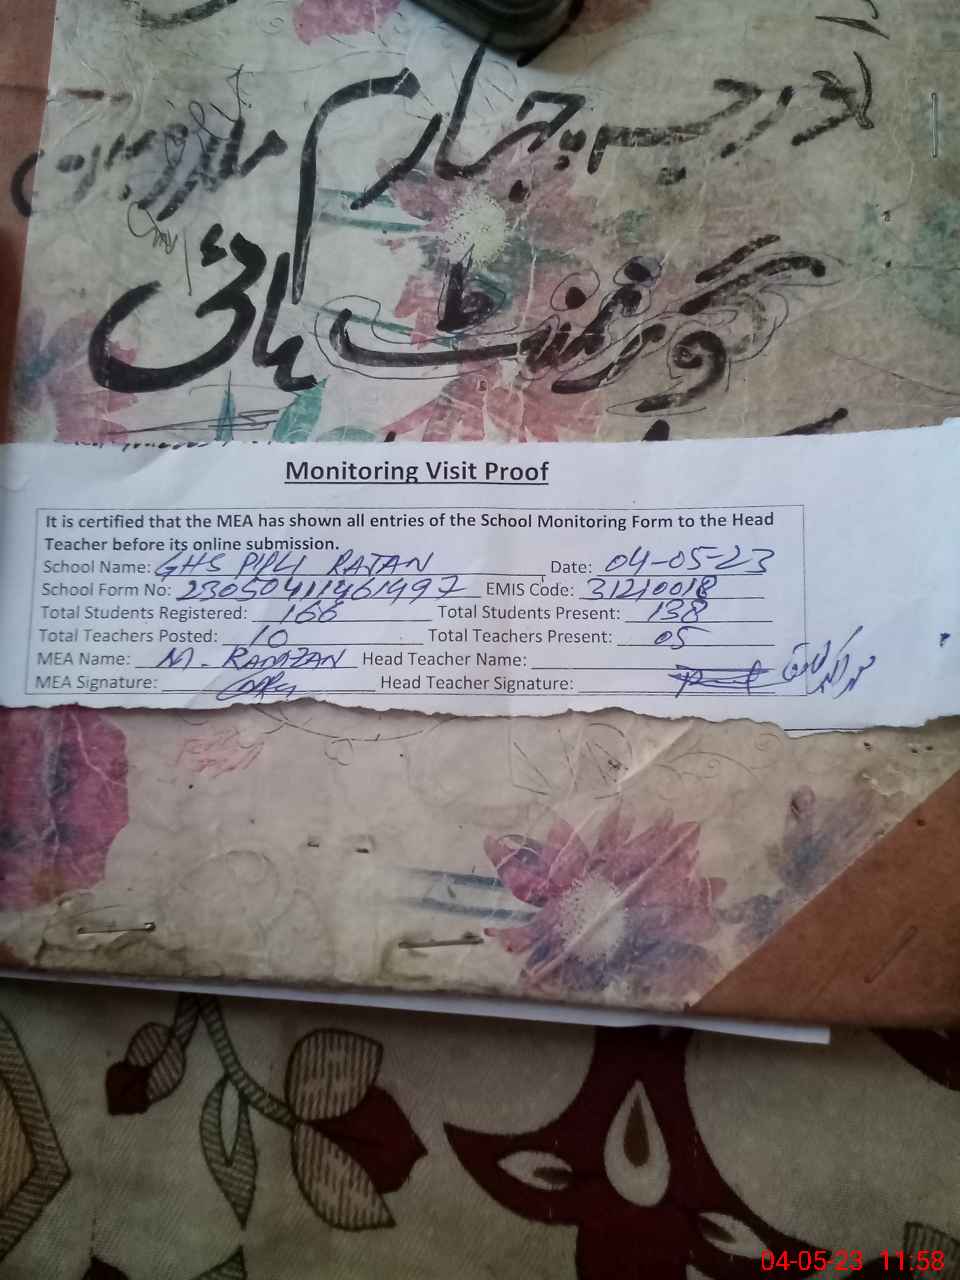 درجہ چہارم ملازمین
گورنمنٹ ہائی
Monitoring Visit Proof
It is certified that the MEA has shown all entries of the School Monitoring Form to the Head
Teacher before its online submission.
School Name: GHS PIPLI RAJAN Date: 04-05-23
School Form No: 23050411461497 EMIS Code: 31210018
Total Students Registered: 166 Total Students Present: 138
Total Teachers Posted: 10 Total Teachers Present: 05
MEA Name: M. RAMZAN Head Teacher Name:
MEA Signature: Head Teacher Signature:
04-05-23 11:58